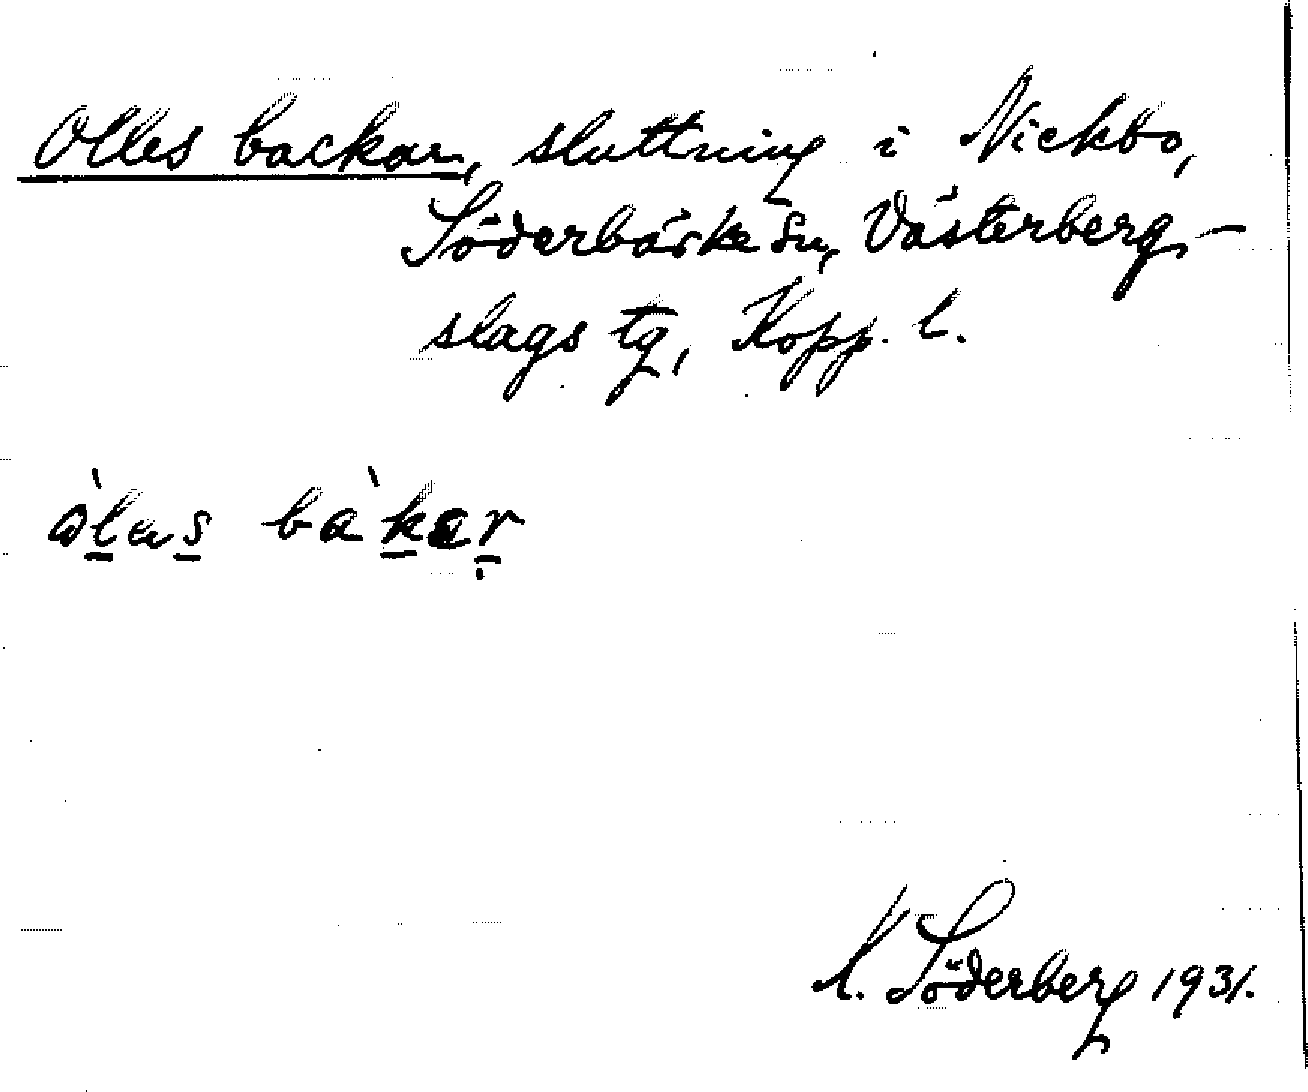 Olles backar, sluttning i Nickbo,
Söderbärke sn, Västerberg-
slags tg, Kopp. l.
òlas bàkar
K. Söderberg 1931.